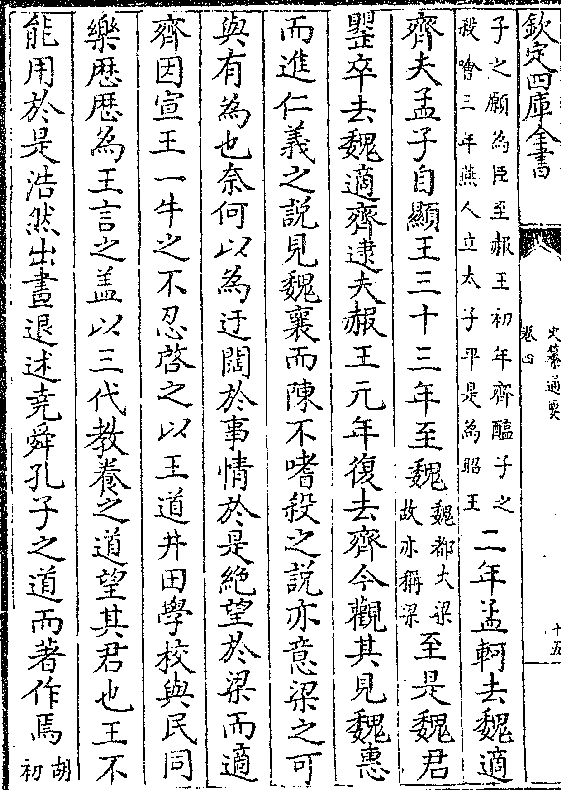 欽定四庫全書
史纂通要
卷四
十五
子之願為臣至赧王初年齊醢子之
殺噲三年燕人立太子平是為昭王
二年孟軻去魏適
齊夫孟子自顯王三十三年至魏
魏都大梁
故亦稱梁
至是魏君
罃卒去魏適齊逮夫赧王元年復去齊今觀其見魏惠
而進仁義之說見魏襄而陳不嗜殺之說亦意梁之可
與有為也奈何以為迂闊於事情於是絶望於梁而適
齊因宣王一牛之不忍啓之以王道井田學校與民同
樂歴歴為王言之盖以三代教養之道望其君也王不
能用於是浩然出晝退述堯舜孔子之道而著作焉
胡
初